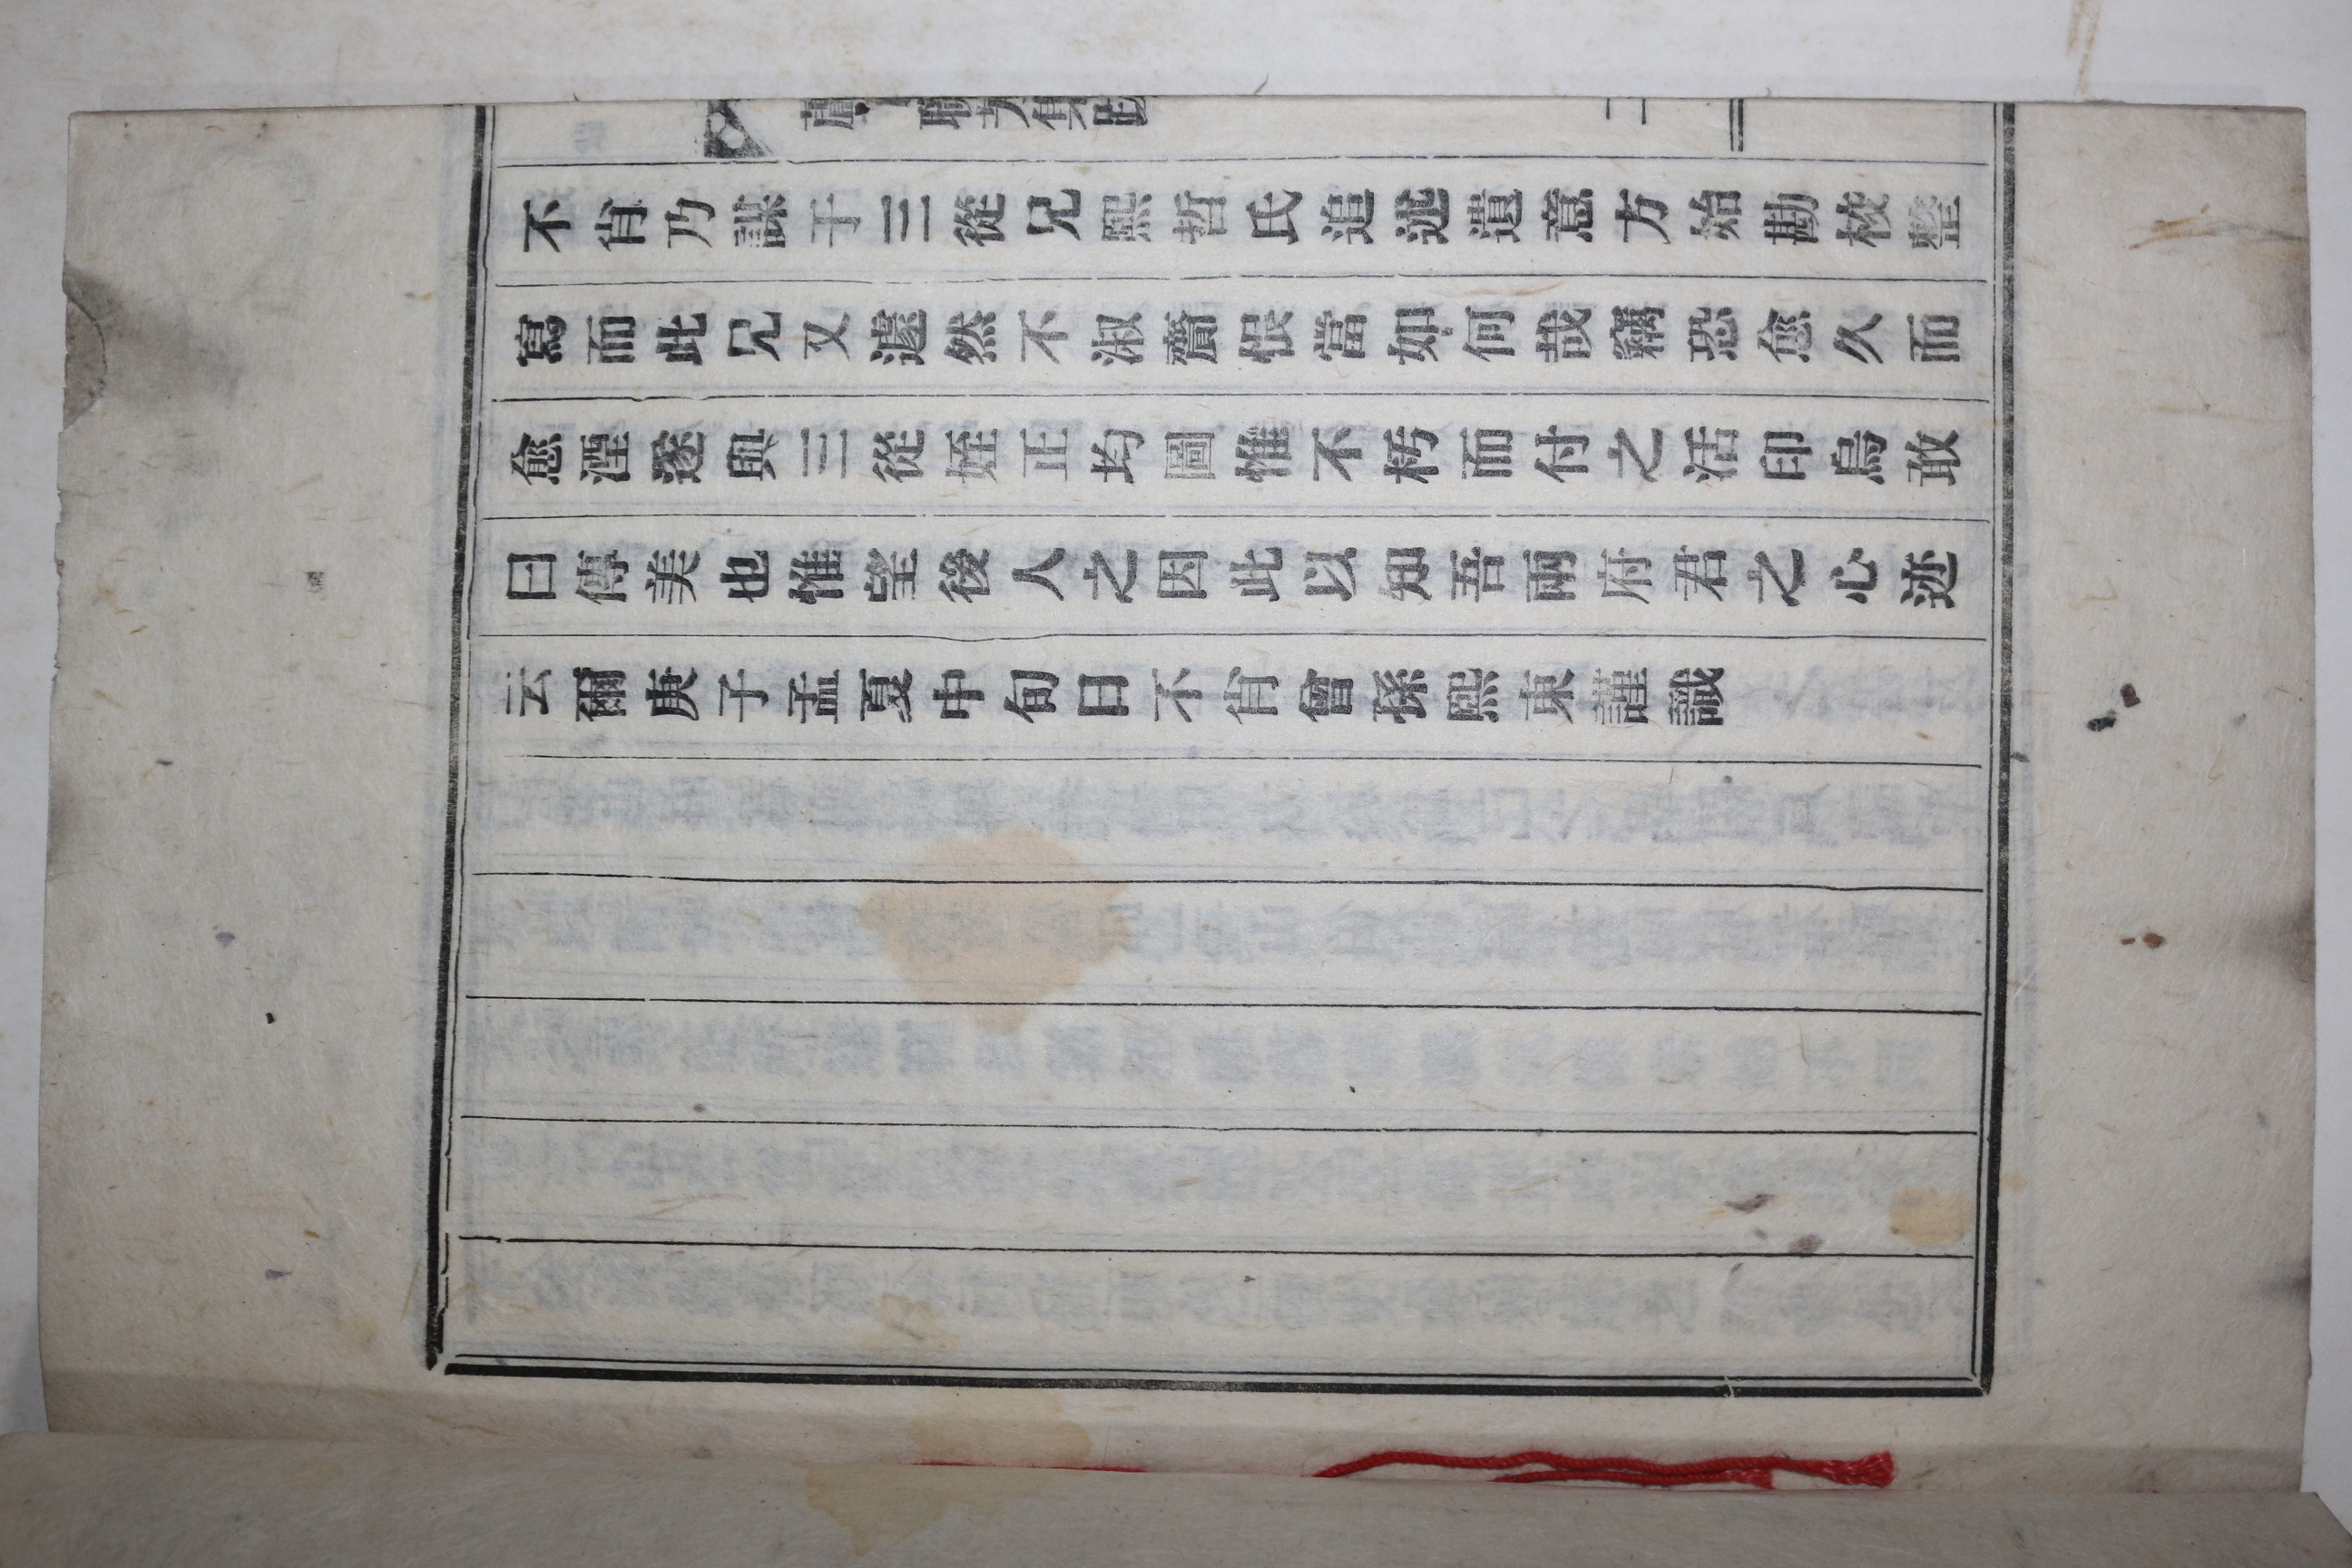 聯芳集跋
二
不肖乃謀于三從兄熙哲氏追述遺意方始勘校整
寫而此兄又遽然不淑齎恨當如何哉竊恐愈久而
愈湮遂與三從姪正均圖惟不朽而付之活印烏敢
曰傳美也惟望後人之因此以知吾兩府君之心迹
云爾庚子孟夏中旬日不肖曾孫熙東謹識